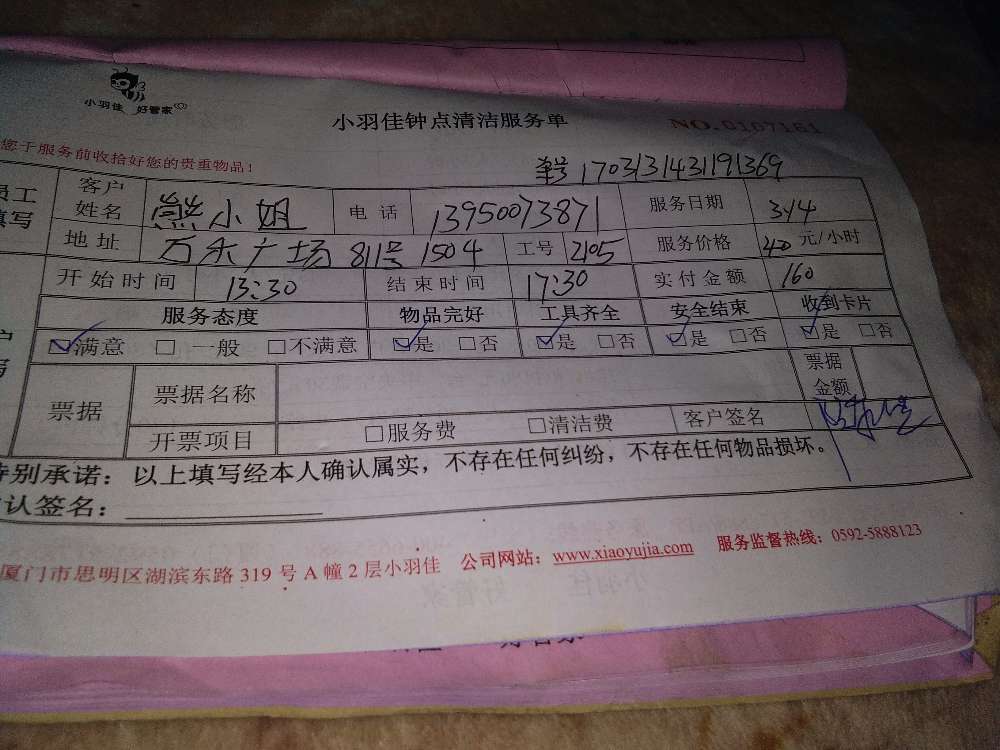 小羽佳 好管家
小羽佳钟点清洁服务单
NO.0107161
您于服务前收拾好您的贵重物品！
单号 1703131431191369
员工填写 客户姓名 熊小姐 电话 13950073871 服务日期 3/4
地址 万禾广场 811号 1504 工号 2105 服务价格 40 元/小时
开始时间 13:30 结束时间 17:30 实付金额 160
服务态度 物品完好 工具齐全 安全结束 收到卡片
☑满意 □一般 □不满意 ☑是 □否 ☑是 □否 ☑是 □否 ☑是 □否
票据 票据名称 票据金额
开票项目 □服务费 □清洁费 客户签名
特别承诺：以上填写经本人确认属实，不存在任何纠纷，不存在任何物品损坏。
认签名：
厦门市思明区湖滨东路 319 号 A 幢 2 层小羽佳 公司网站：www.xiaoyujia.com 服务监督热线：0592-5888123